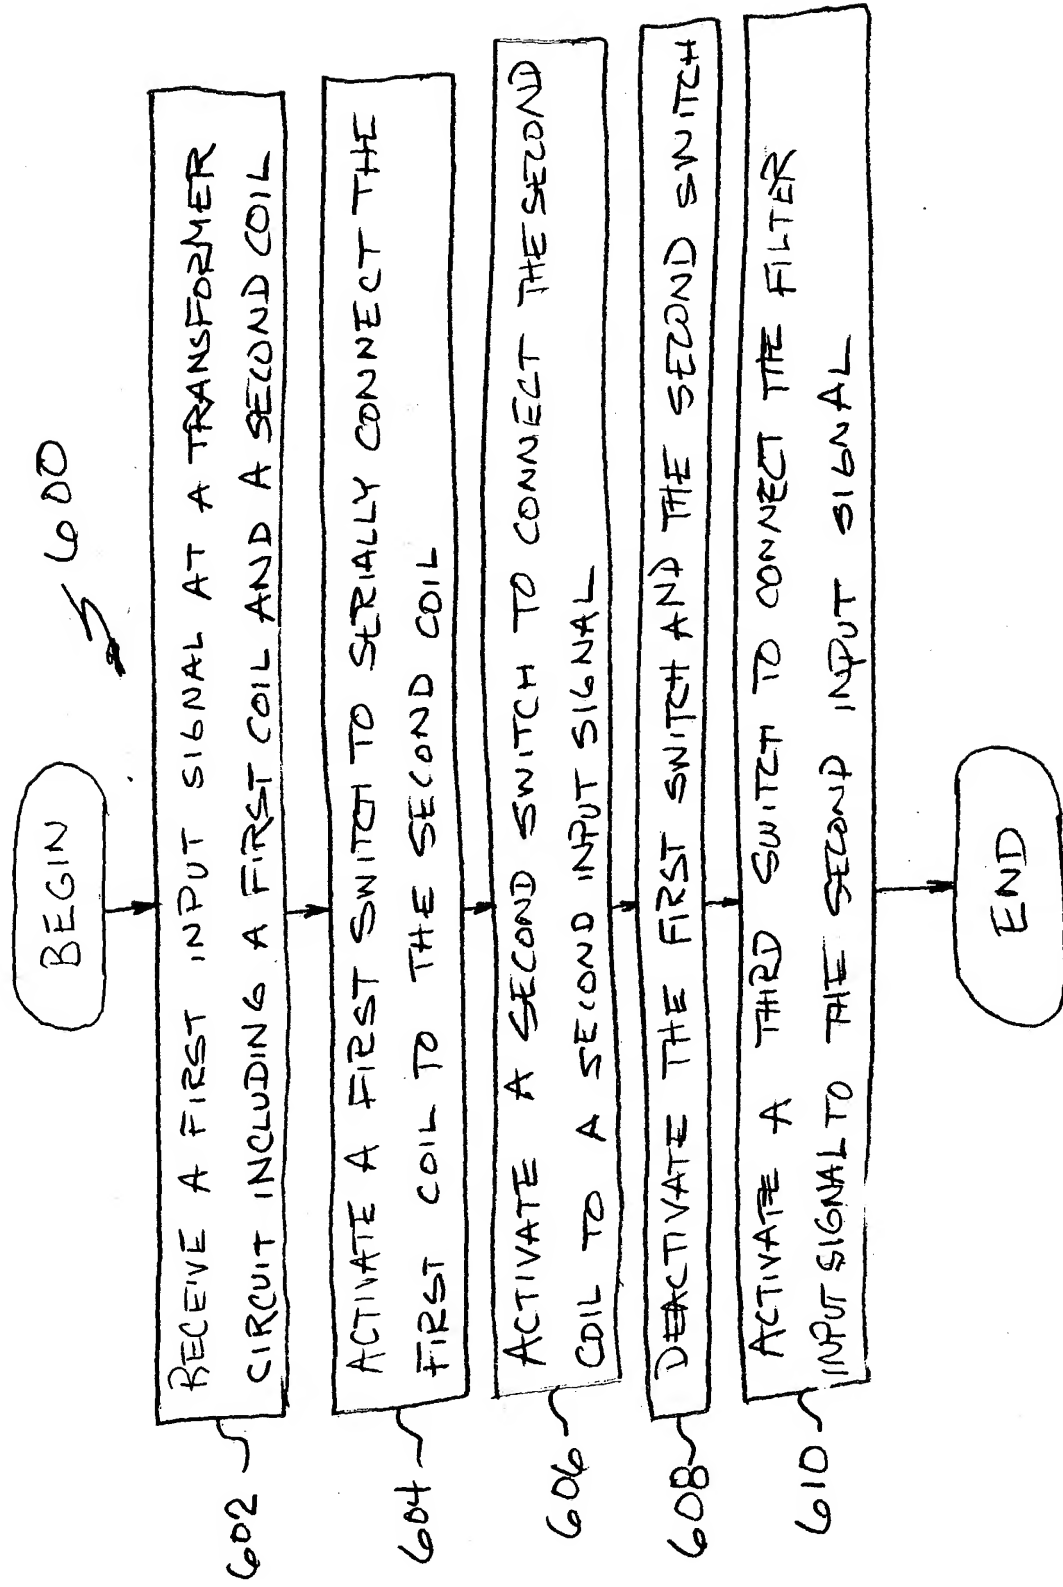 600
BEGIN
RECEIVE A FIRST INPUT SIGNAL AT A TRANSFORMER
CIRCUIT INCLUDING A FIRST COIL AND A SECOND COIL
602
ACTIVATE A FIRST SWITCH TO SERIALLY CONNECT THE
FIRST COIL TO THE SECOND COIL
604
ACTIVATE A SECOND SWITCH TO CONNECT THE SECOND
COIL TO A SECOND INPUT SIGNAL
606
DEACTIVATE THE FIRST SWITCH AND THE SECOND SWITCH
608
ACTIVATE A THIRD SWITCH TO CONNECT THE FILTER
INPUT SIGNAL TO THE SECOND INPUT SIGNAL
610
END